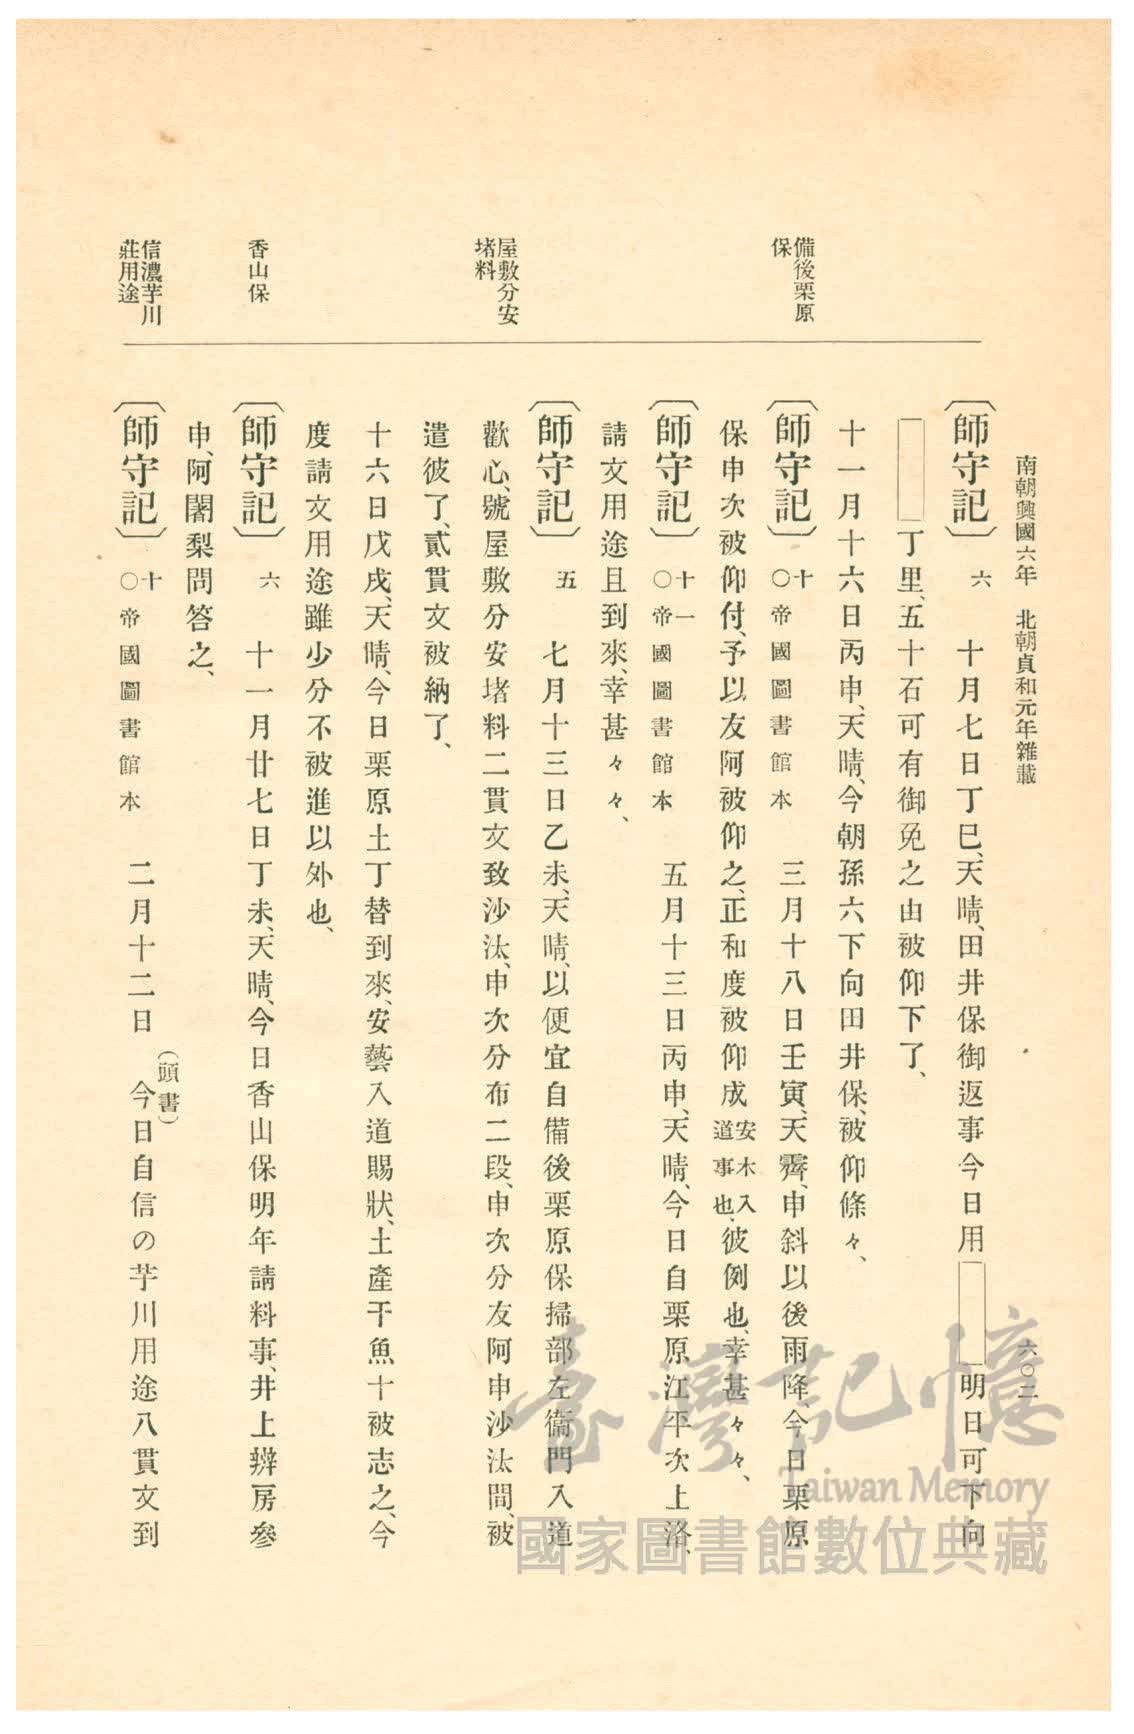 南朝興國六年　北朝貞和元年雜載
六〇二
〔師守記〕六　十月七日丁巳、天晴、田井保御返事今日用　　明日可下向
丁里、五十石可有御免之由被仰下了、
十一月十六日丙申、天晴、今朝孫六下向田井保、被仰條々、
備後栗原
保
〔師守記〕十〇帝國圖書館本　三月十八日壬寅、天霽、申斜以後雨降、今日栗原
保申次被仰付、予以友阿被仰之、正和度被仰成安木入道事也、彼例也、幸甚々々、
〔師守記〕十一〇帝國圖書館本　五月十三日丙申、天晴、今日自栗原江平次上洛、
請文用途且到來、幸甚々々、
屋敷分安
堵料
〔師守記〕五　七月十三日乙未、天晴、以便宜自備後栗原保掃部左衞門入道
歡心、號屋敷分安堵料二貫文致沙汰、申次分布二段、申次分友阿申沙汰間、被
遣彼了、貳貫文被納了、
十六日戊戌、天晴、今日栗原土丁替到來、安藝入道賜狀、土產干魚十被志之、今
度請文用途雖少分不被進以外也、
香山保
〔師守記〕六　十一月廿七日丁未、天晴、今日香山保明年請料事、井上辨房參
申、阿闍梨問答之、
信濃芋川
莊用途
〔師守記〕十〇帝國圖書館本　二月十二日　（頭書）今日自信の芋川用途八貫文到
臺灣記憶
Taiwan Memory
國家圖書館數位典藏